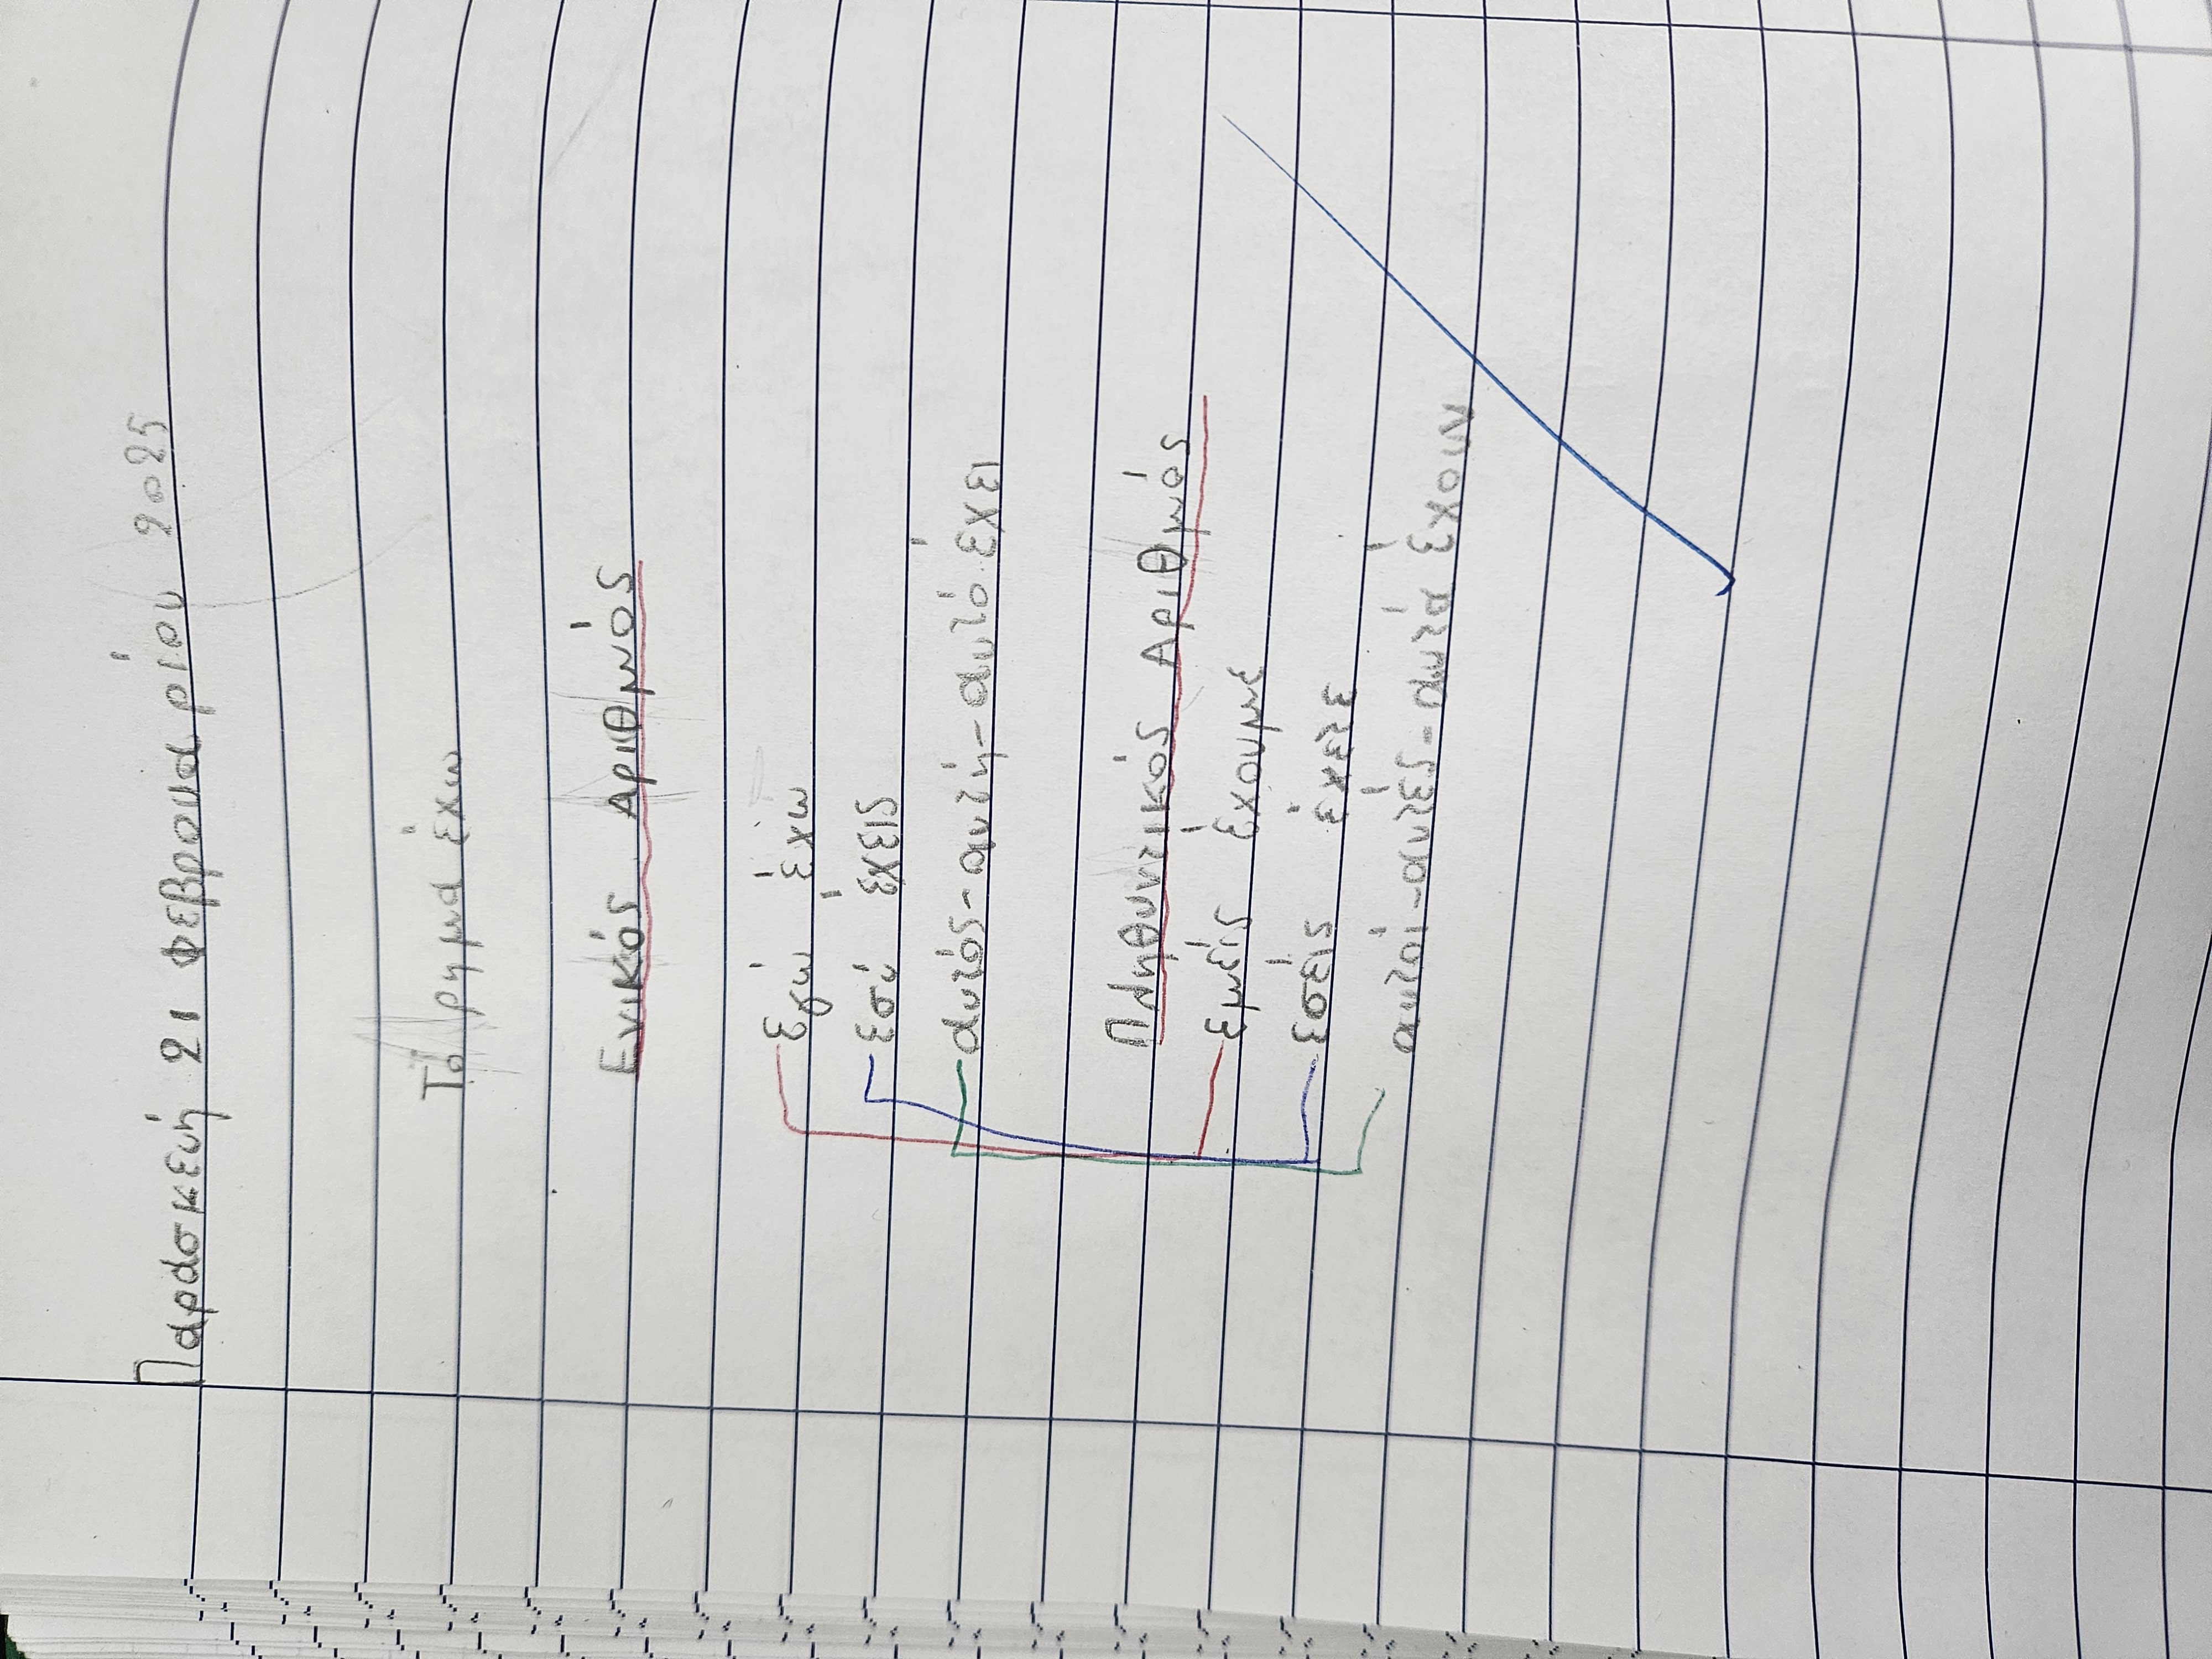 Παρασκευή 21 Φεβρουαρίου 2025
Το ρημμά έχω
Ενικός Αριθμός
Εγώ έχω
Εσύ έχεις
αυτός-αυτή-αυτό έχει
Πληθυντικός Αριθμός
Εμείς έχουμε
Εσείς έχετε
αυτοί-αυτές-αυτά έχουν